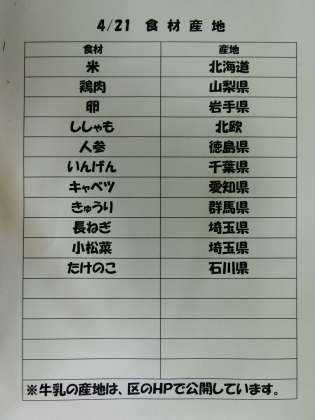 4/21 食材産地
食材 産地
米 北海道
鶏肉 山梨県
卵 岩手県
ししゃも 北欧
人参 徳島県
いんげん 千葉県
キャベツ 愛知県
きゅうり 群馬県
長ねぎ 埼玉県
小松菜 埼玉県
たけのこ 石川県
※牛乳の産地は、区のHPで公開しています。